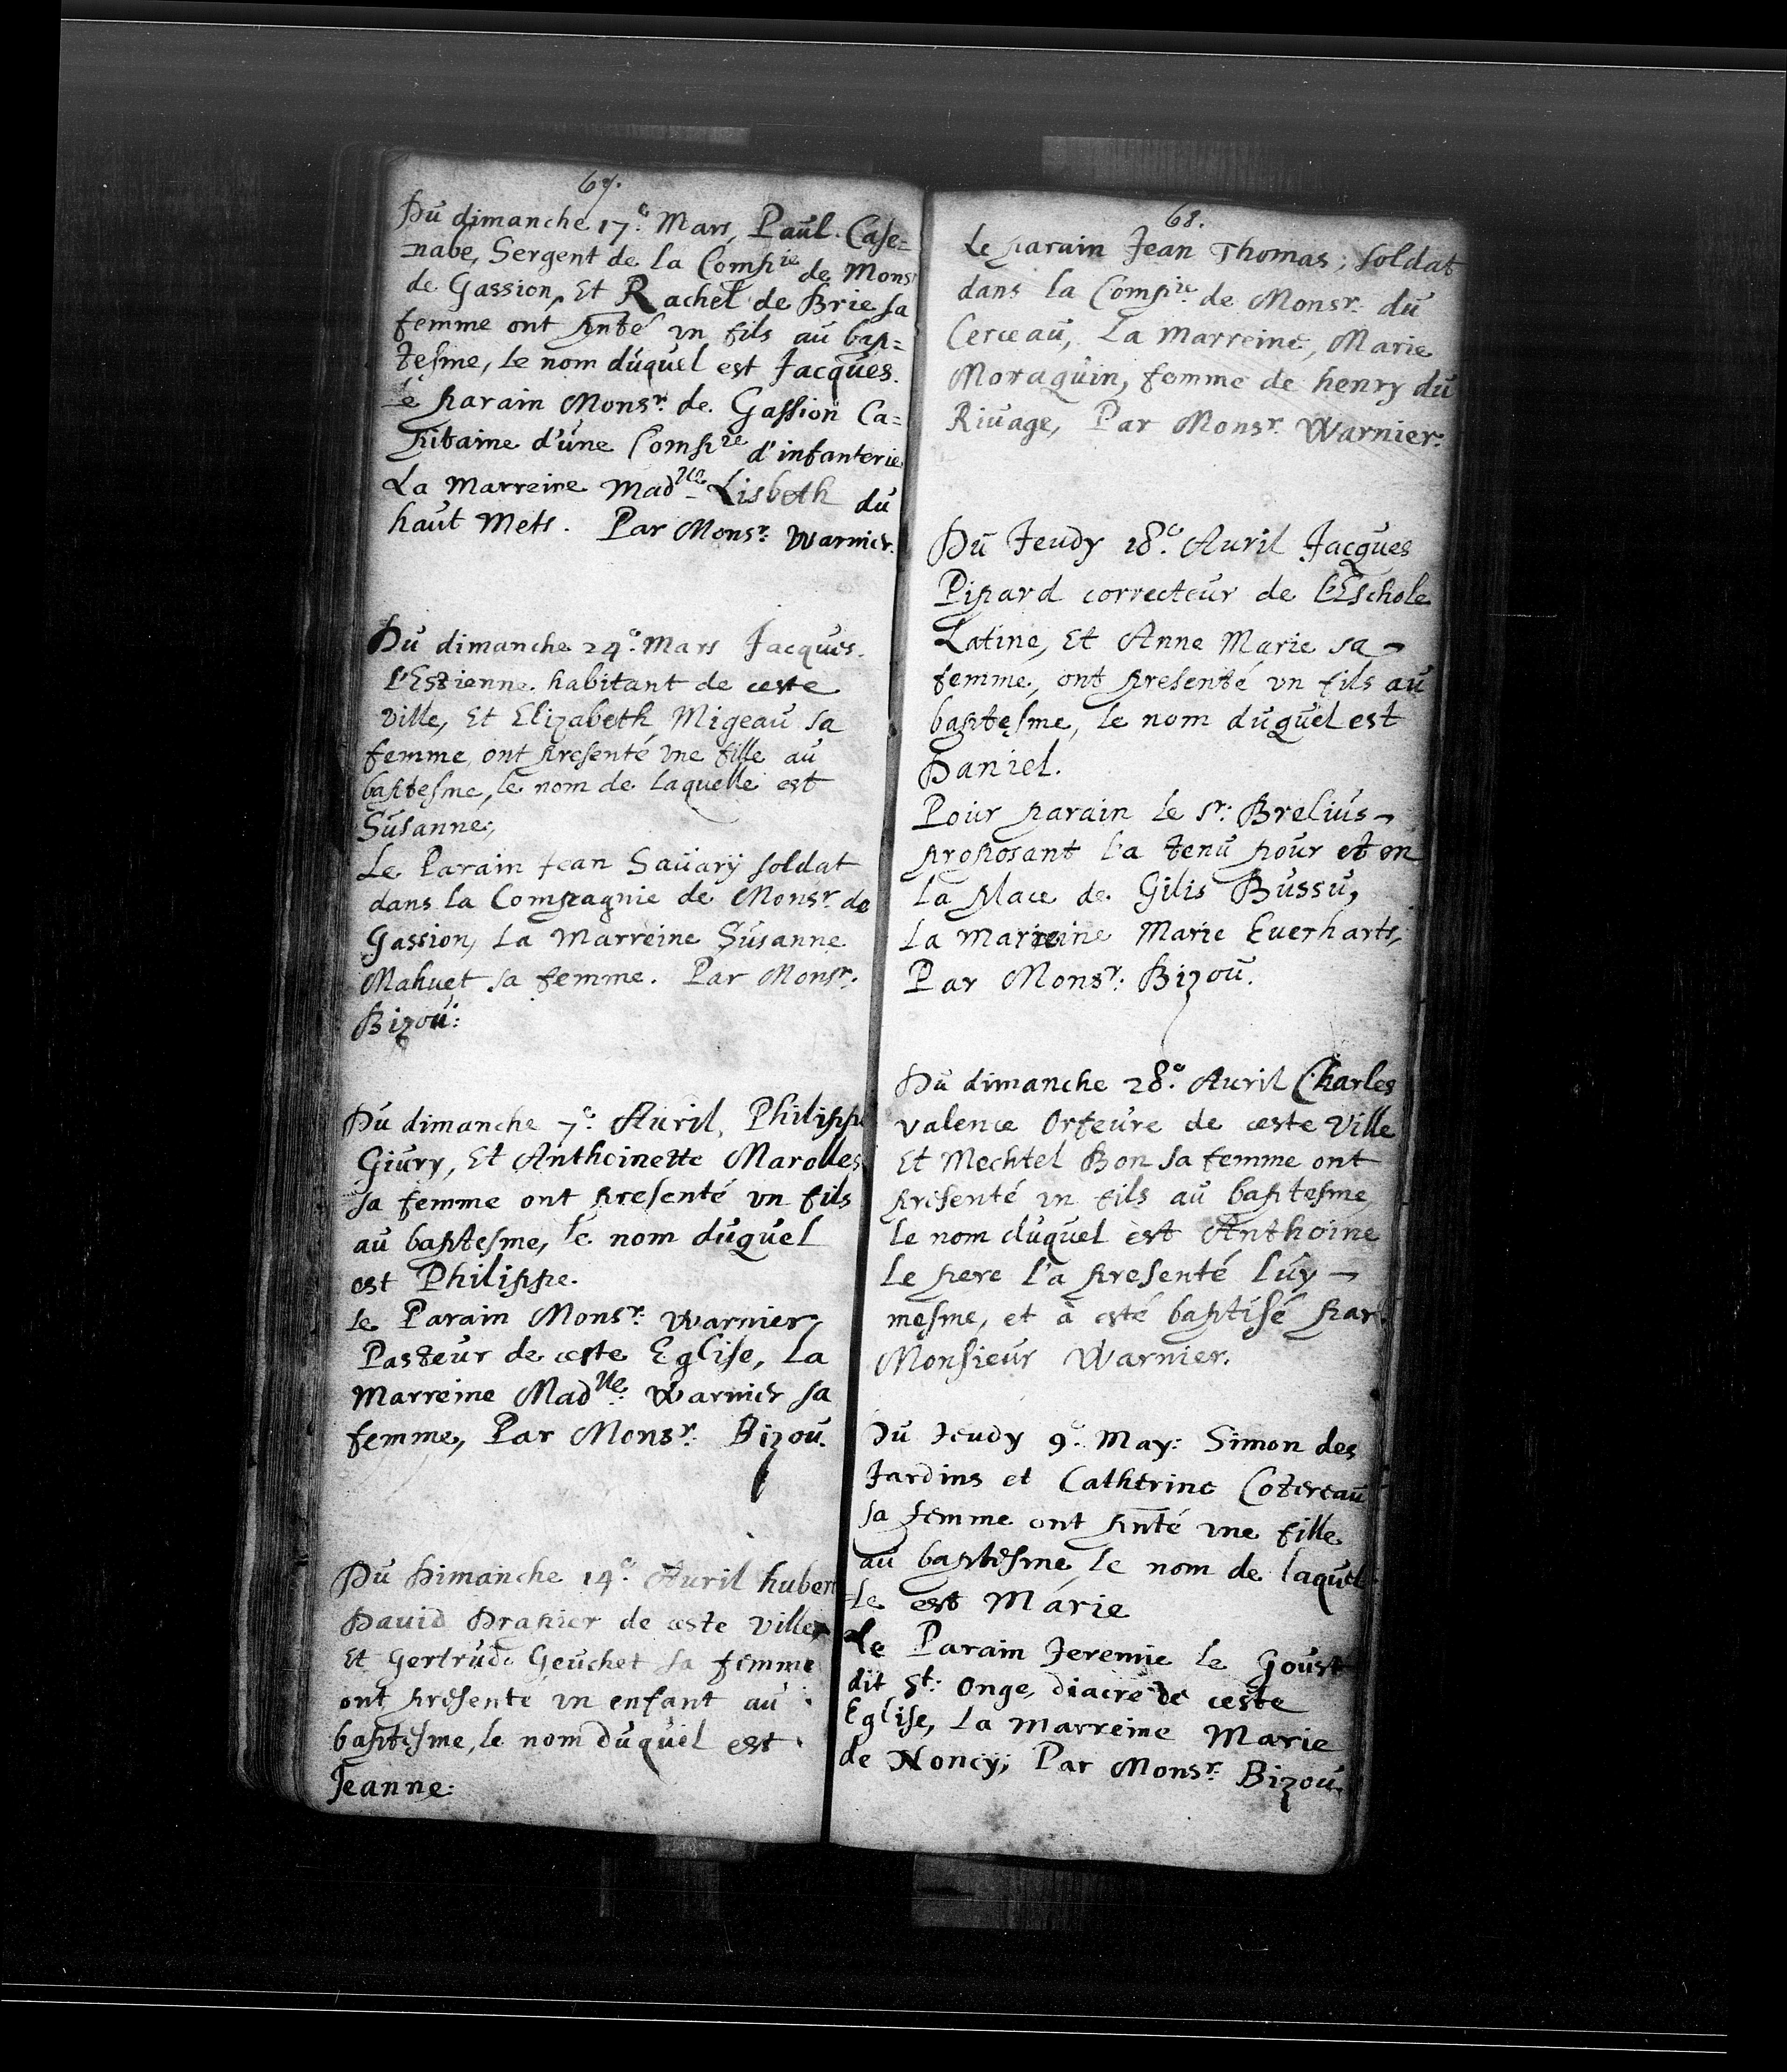 67.
Du dimanche 17.e Mars, Paul Case=
nabe, Sergent de la Comp.ie de Mons
de Gassion, Et Rachel de Brie sa
femme ont pnté vn fils au bap=
tesme, le nom duquel est Jacques.
le parain Monsr. de Gassion Ca=
pitaine d'une Comp.ie d'infanterie
La marreine Mad.lle Lisbeth du
haut Mets. Par Monsr: Warnier.
Du dimanche 24.e Mars Jacques
l'Estienne habitant de ceste
ville, Et Elizabeth Migeau sa
femme ont presenté vne fille au
baptesme, le nom de laquelle est
Susanne,
Le Parain Jean Sauary soldat
dans la Compagnie de Monsr. de
Gassion, La Marreine Susanne
Mahuet sa femme. Par Monsr.
Bizou:
Du dimanche 7.e Auril, Philippe
Giury, Et Anthoinette Marolles
sa femme ont presenté vn fils
au baptesme, le nom duquel
est Philippe.
le Parain Monsr. Warnier,
Pasteur de ceste Eglise, La
Marreine Mad.lle Warnier sa
femme, Par Monsr. Bizou.
Du Dimanche 14.e Auril huber
Dauid Drapier de ceste ville
Et Gertrude Geuchet sa femme
ont presente vn enfant au
baptesme, le nom duquel est
Jeanne:
68.
Le parain Jean Thomas, soldat
dans la Comp.ie de Monsr. du
Cerceau, La marreine, Marie
Moraquin, femme de henry du
Riuage, Par Monsr. Warnier:
Du Jeudy 18.e Auril Jacques
Pipard correcteur de l'Eschole
Latine, Et Anne Marie sa
femme, ont presenté vn fils au
baptesme, le nom duquel est
Daniel.
Pour parain le Sr: Brelius
proposant l'a tenu pour et en
la place de Gilis Bussu,
La marreine Marie Euerharts,
Par Monsr: Bizou.
Du dimanche 28.e Auril Charles
valence Orfeure de ceste Ville
Et Mechtel Bon sa femme ont
presenté vn fils au baptesme,
le nom duquel est Anthoine
Le pere l'a presenté luy
mesme, et à esté baptisé par
Monsieur Warnier.
Du Jeudy 9.e May: Simon des
Jardins et Catherine Cotereau
sa femme ont pnté vne fille
au baptesme, le nom de laquel
le est Marie
Le Parain Jeremie le Goust
dit St: Onge, diacre de ceste
Eglise, La marreine Marie
de Noncy; Par Monsr: Bizou.